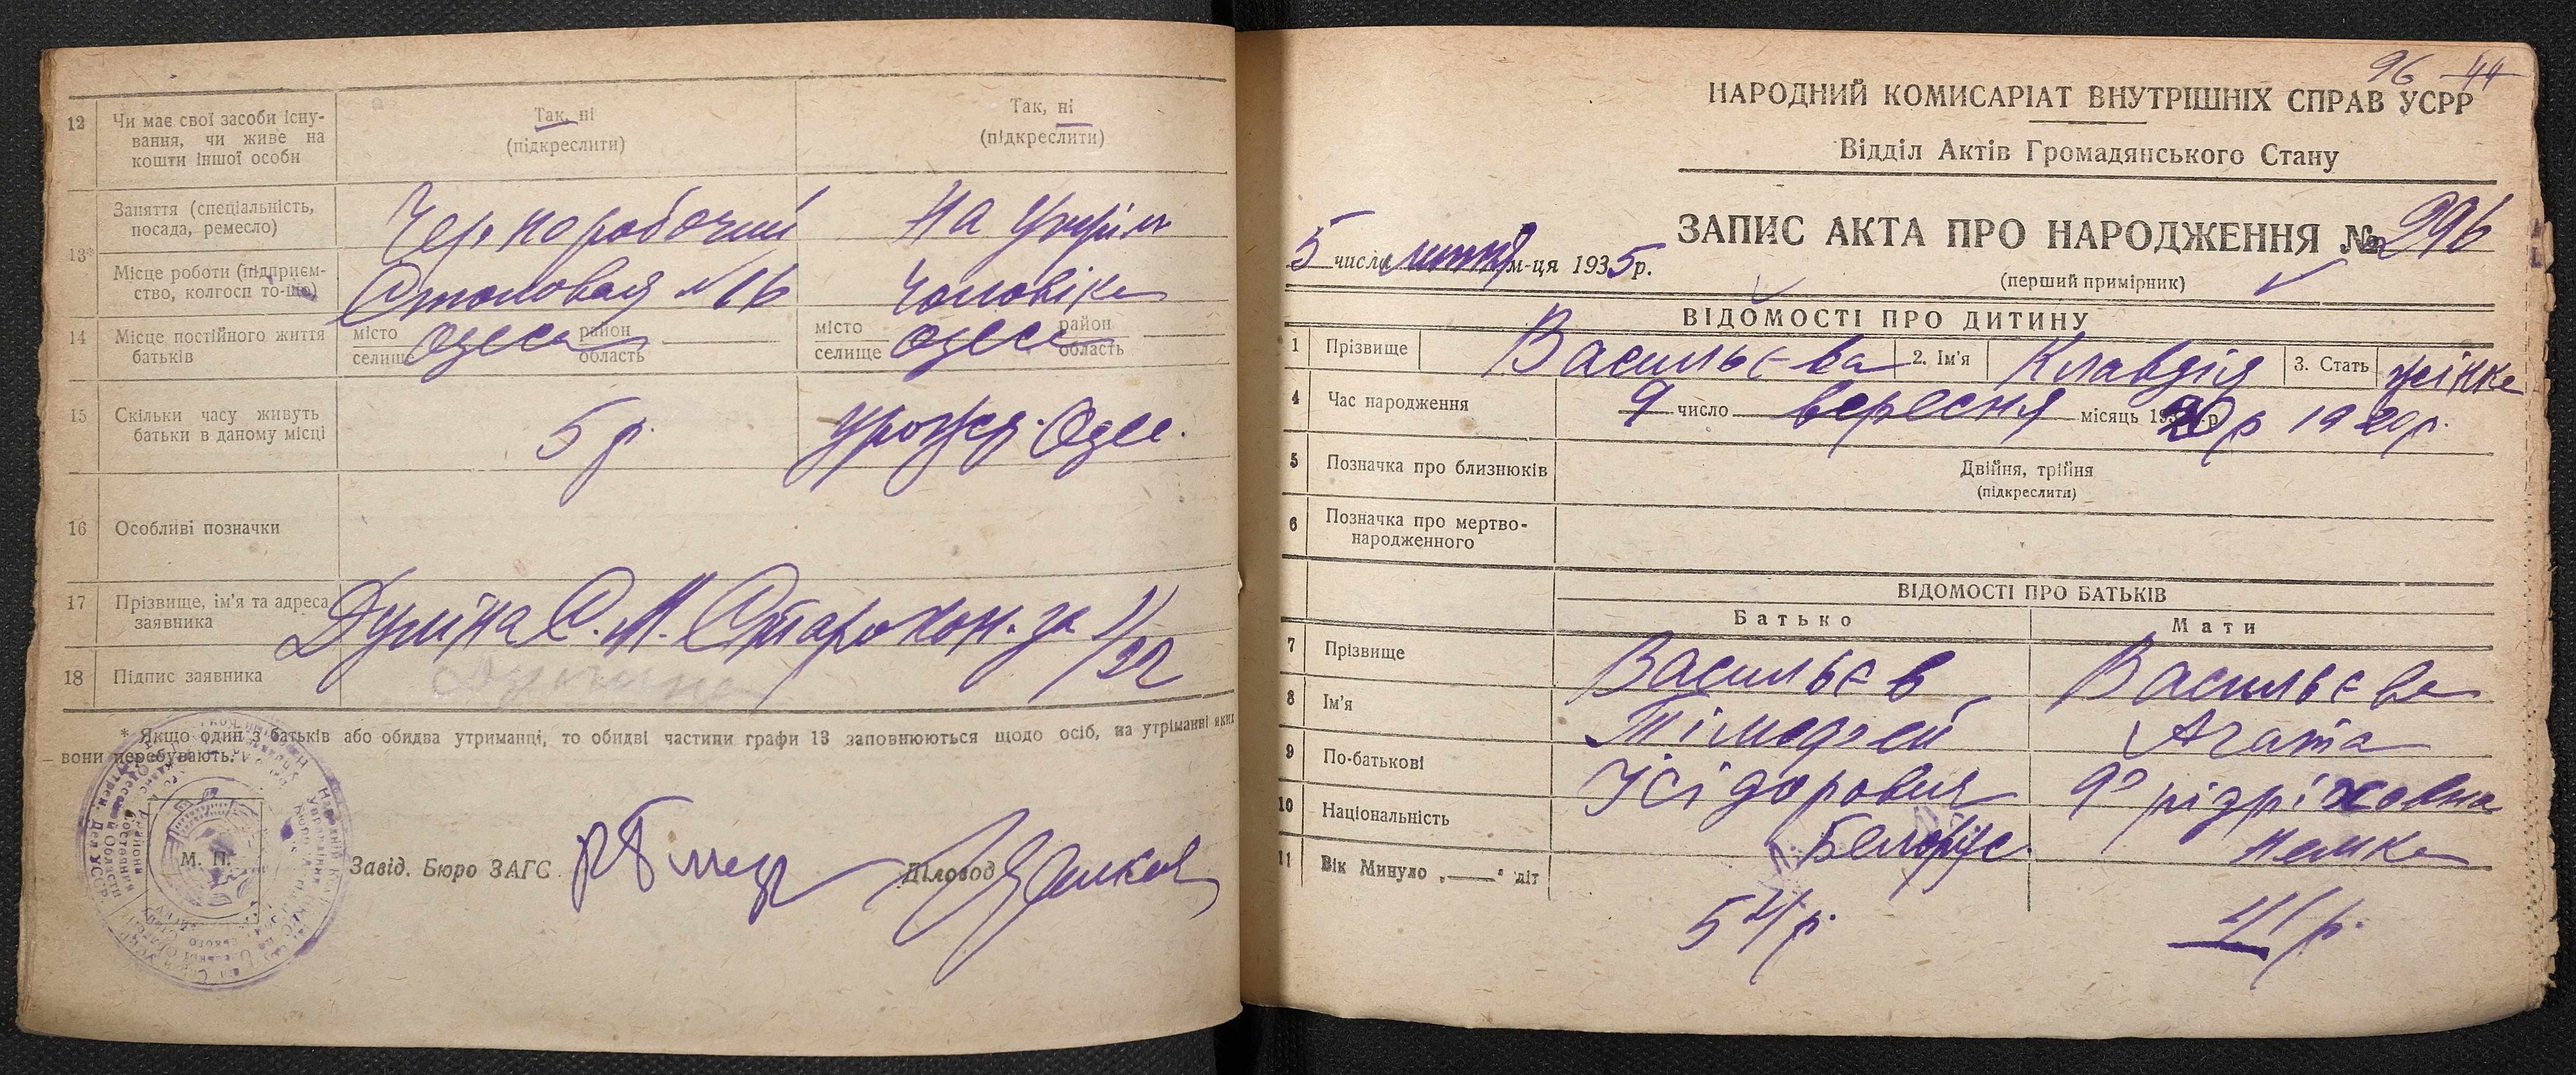 12 Чи має свої засоби існу-
вання, чи живе на
кошти іншої особи
Так, ні
(підкреслити)
Так, ні
(підкреслити)
13*
Заняття (спеціальність,
посада, ремесло)
Черноробочий
На утрім
Місце роботи (підприєм-
ство, колгосп то-що)
Столовая №16
Чоловіка
14 Місце постійного життя
батьків
місто
селище
Одеса
район
область
місто
селище
Одеса
район
область
15 Скільки часу живуть
батьки в даному місці
5 р.
Урожд. Одес.
16 Особливі позначки
17 Прізвище, ім'я та адреса
заявника
С. М. Старокон.
18 Підпис заявника
* Якщо один з батьків або обидва утриманці, то обидві частини графи 13 заповнюються щодо осіб, на утриманні яких
вони перебувають.
М. П.
Завід. Бюро ЗАГС
Діловод
96 44
НАРОДНИЙ КОМИСАРІАТ ВНУТРІШНІХ СПРАВ УСРР
Відділ Актів Громадянського Стану
ЗАПИС АКТА ПРО НАРОДЖЕННЯ № 296
5 числа лютня м-ця 1935 р.
(перший примірник)
ВІДОМОСТІ ПРО ДИТИНУ
1 Прізвище Васильєва 2. Ім'я Клавдія 3. Стать жінка
4 Час народження 9 число вересня місяць 1920 р 1920 р.
5 Позначка про близнюків
Двійня, трійня
(підкреслити)
6 Позначка про мертво-
народженного
ВІДОМОСТІ ПРО БАТЬКІВ
Батько Мати
7 Прізвище Васильєв Васильєва
8 Ім'я Тімофей Агата
9 По-батькові Ісідорович Фрідріховна
10 Національність Белорус. Немка
11 Вік Минуло „___“ літ
54 р. 41 р.